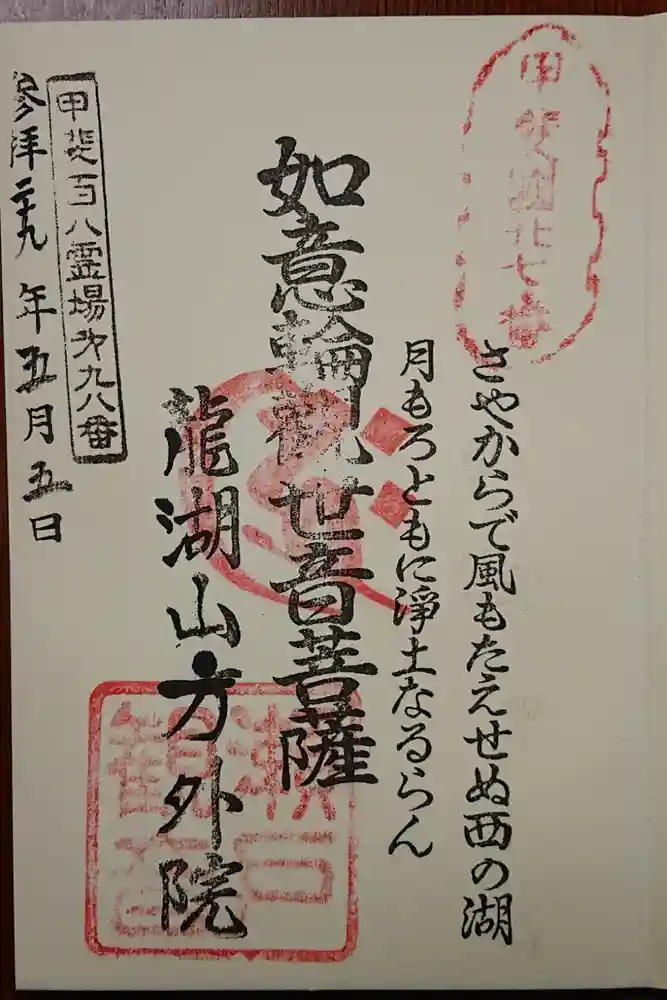 甲斐国卅七番
さやからで風もたえせぬ西の湖
月もろともに淨土なるらん
如意輪観世音菩薩
龍湖山方外院
甲斐百八霊場第九八番
参拝二十九年五月五日